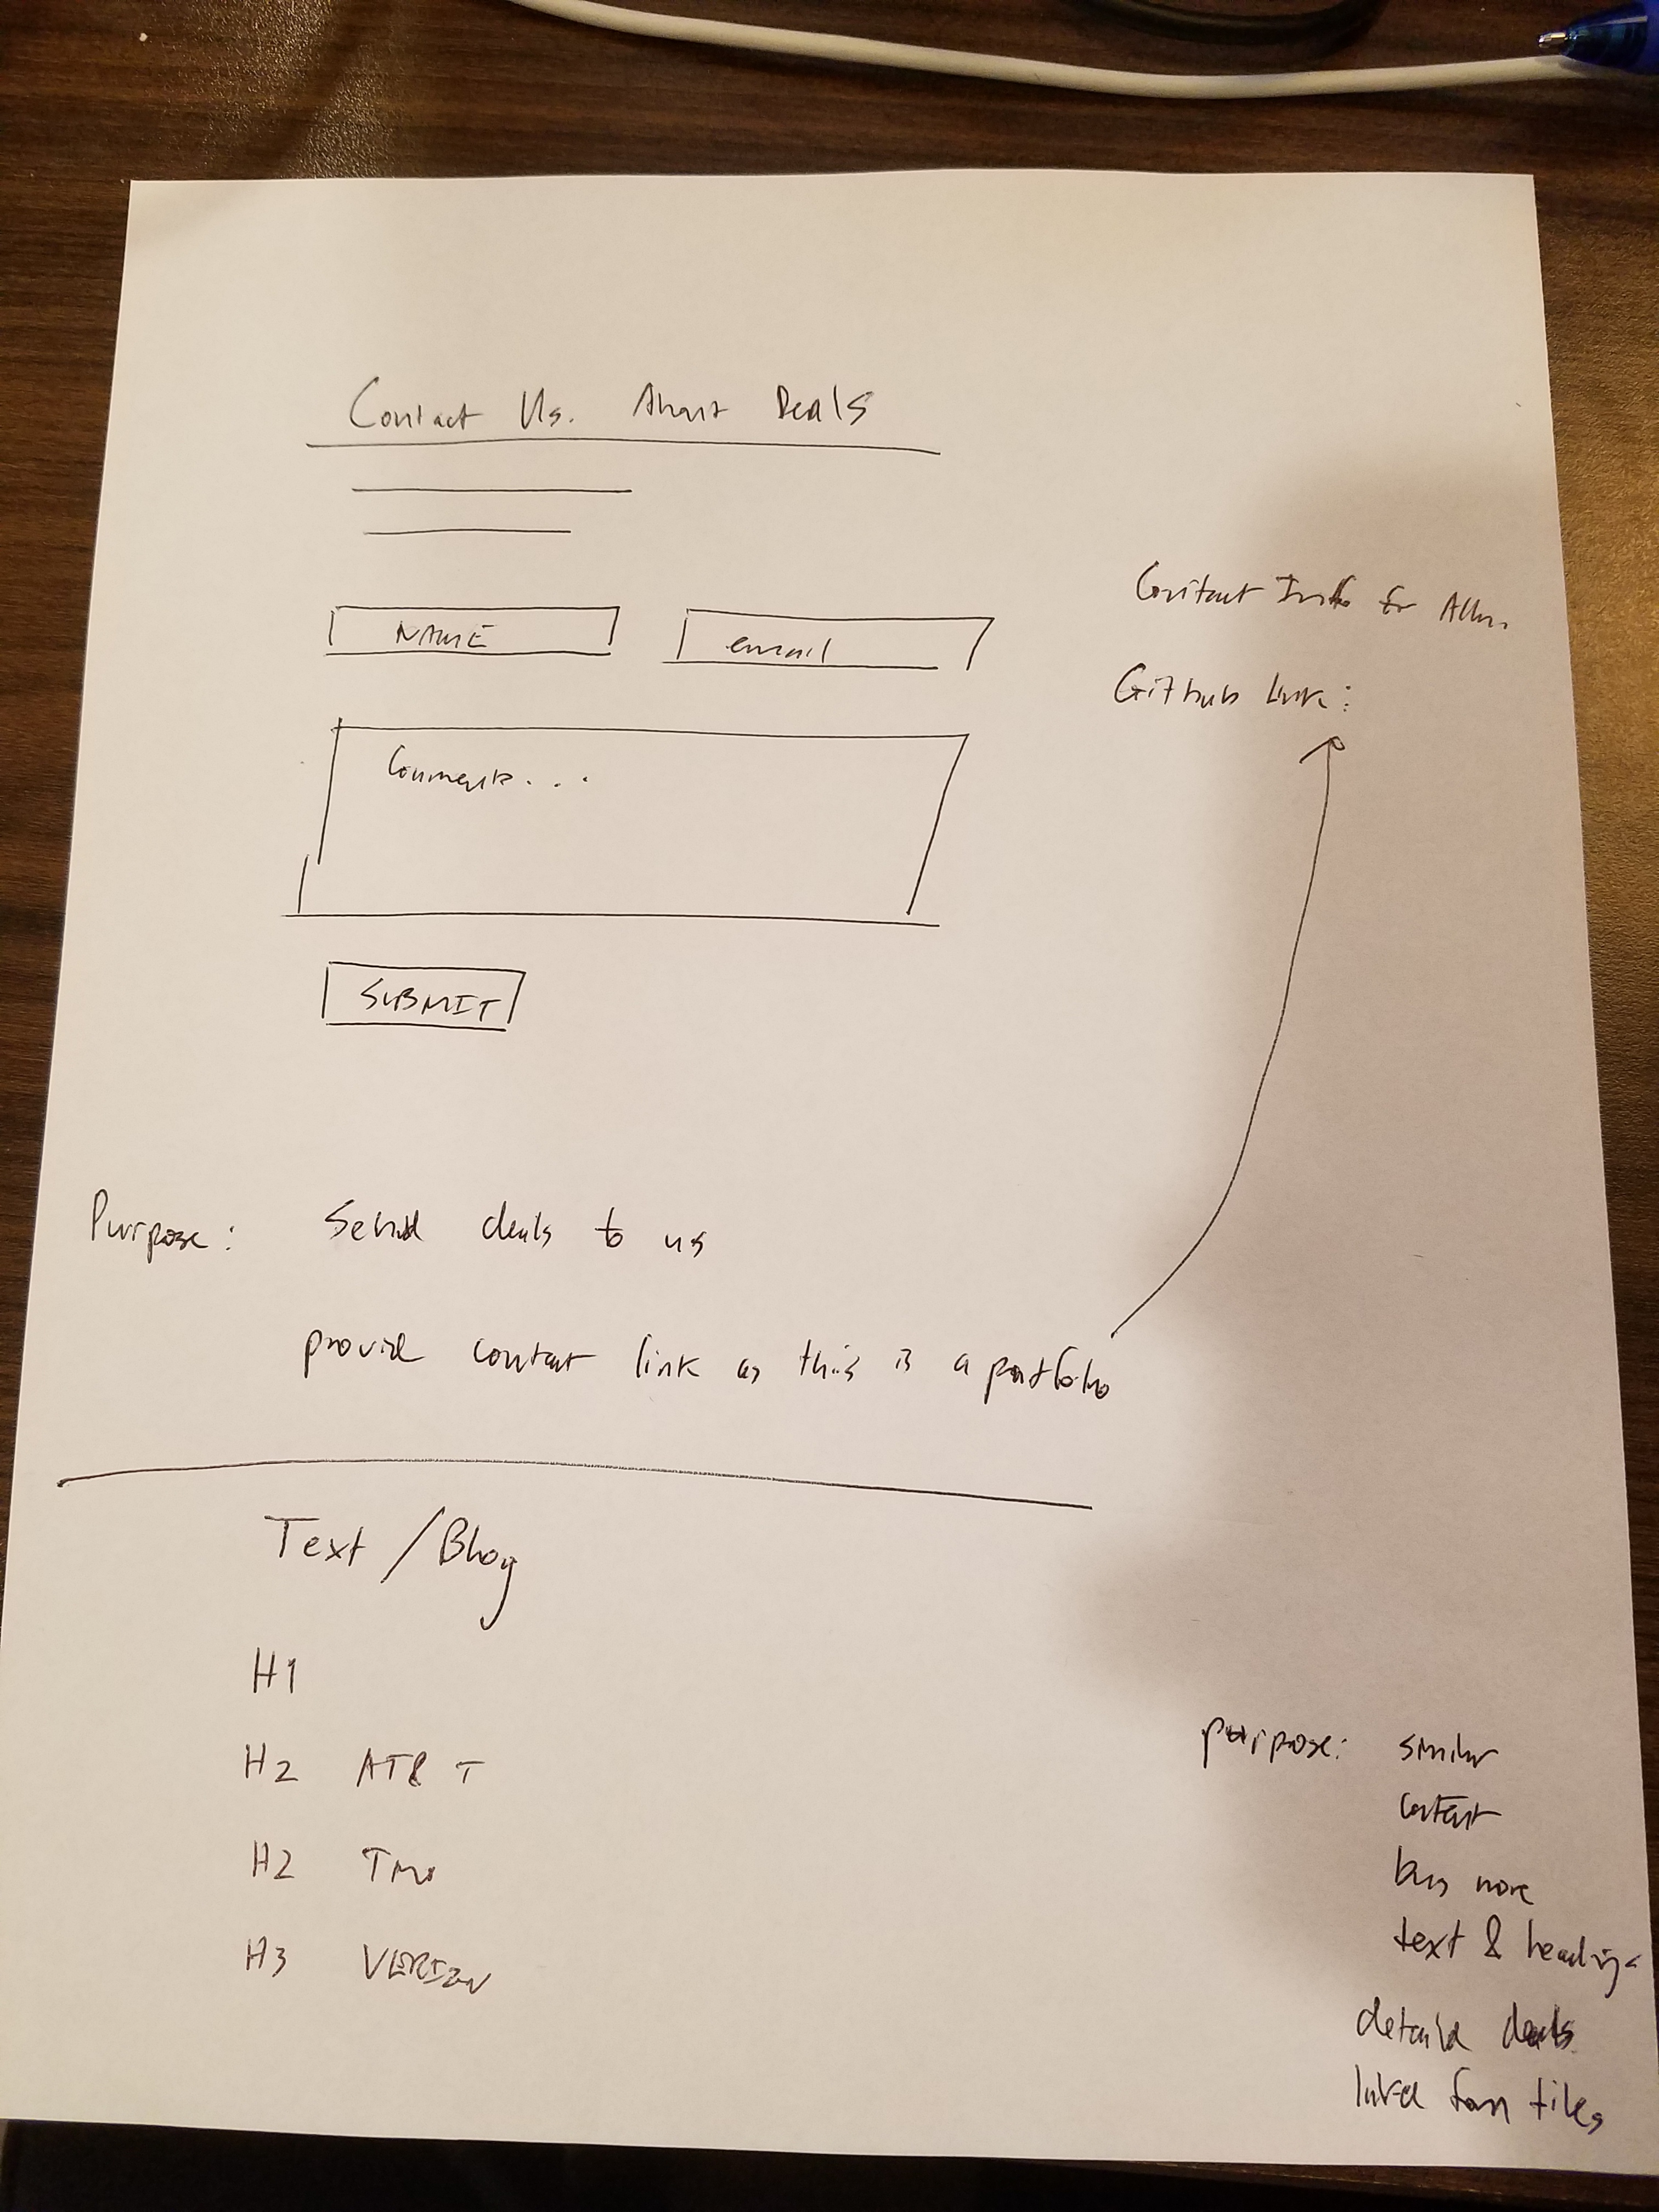 Contact Us. About Deals
NAME
email
Comments...
SUBMIT
Contact Info for
Github Link:
Purpose: Send deals to us
provide contact link as this is a portfolio
Text / Blog
H1
H2 AT&T
H2 TMo
H3 VERIZON
purpose: similar
content
but more
text & headings
detailed deals
linked from tiles